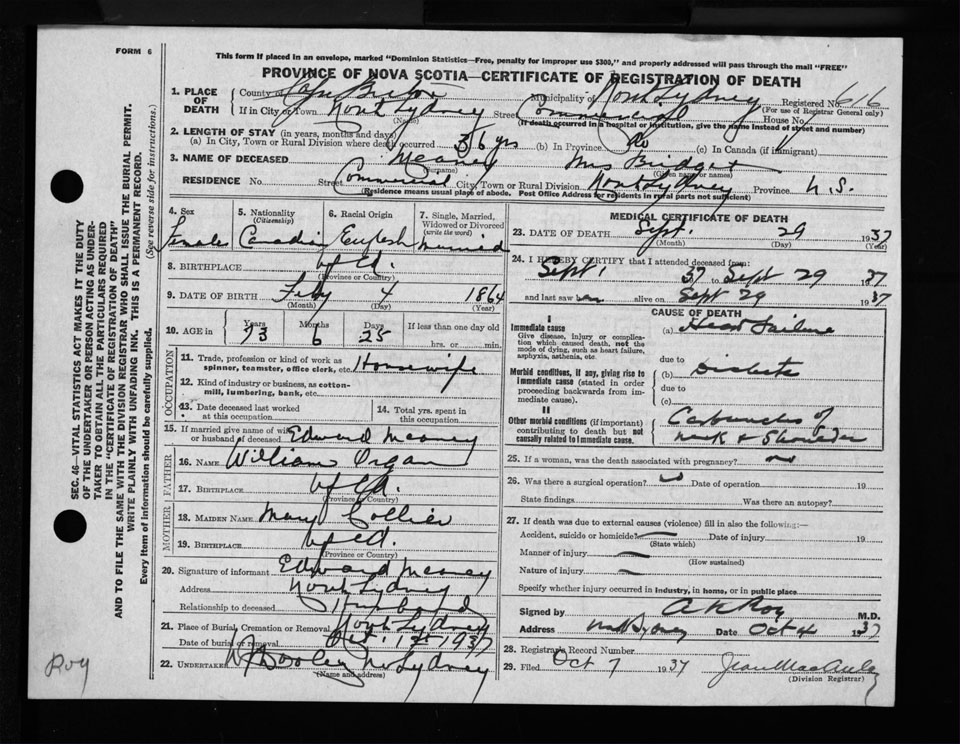 FORM 6
This form if placed in an envelope, marked "Dominion Statistics—Free, penalty for improper use $300," and properly addressed will pass through the mail "FREE"
PROVINCE OF NOVA SCOTIA—CERTIFICATE OF REGISTRATION OF DEATH
1. PLACE OF DEATH { County of Cape Breton Municipality of North Sydney Registered No. 616
(For use of Registrar General only)
If in City or Town North Sydney Street Commercial House No.
(Name) (If death occurred in a hospital or institution, give the name instead of street and number)
2. LENGTH OF STAY (in years, months and days)
(a) In City, Town or Rural Division where death occurred 36 yrs (b) In Province do (c) In Canada (if immigrant)
3. NAME OF DECEASED Meaney Mrs Bridget
(Surname) (Given name or names)
RESIDENCE No. Street Commercial City, Town or Rural Division North Sydney Province N.S.
(Residence means usual place of abode. Post Office Address for residents in rural parts not sufficient)
4. Sex Female
5. Nationality (Citizenship) Canadian
6. Racial Origin English
7. Single, Married, Widowed or Divorced (write the word) Married
8. BIRTHPLACE Nfld.
(Province or Country)
9. DATE OF BIRTH Feby 4 1864
(Month) (Day) (Year)
10. AGE in Years 73 Months 6 Days 25 If less than one day old
hrs. or min.
OCCUPATION
11. Trade, profession or kind of work as spinner, teamster, office clerk, etc. Housewife
12. Kind of industry or business, as cotton-mill, lumbering, bank, etc.
13. Date deceased last worked at this occupation
14. Total yrs. spent in this occupation
15. If married give name of wife or husband of deceased Edward Meaney
FATHER
16. NAME William Organ
17. BIRTHPLACE Nfld.
(Province or Country)
MOTHER
18. MAIDEN NAME Mary Collier
19. BIRTHPLACE Nfld.
(Province or Country)
20. Signature of informant Edward Meaney
Address North Sydney
Relationship to deceased Husband
21. Place of Burial, Cremation or Removal North Sydney
Date of burial or removal Oct. 1st 1937
22. UNDERTAKER Dooley No Sydney
(Name and address)
MEDICAL CERTIFICATE OF DEATH
23. DATE OF DEATH Sept. 29 1937
(Month) (Day) (Year)
24. I HEREBY CERTIFY that I attended deceased from:
Sept 1 37 to Sept 29 1937
and last saw her alive on Sept 29 1937
CAUSE OF DEATH
I
Immediate cause
Give disease, injury or complication which caused death, not the mode of dying, such as heart failure, asphyxia, asthenia, etc.
(a) Heart Failure
due to
Morbid conditions, if any, giving rise to immediate cause (stated in order proceeding backwards from immediate cause).
(b) Diabetes
due to
(c)
II
Other morbid conditions (if important) contributing to death but not causally related to immediate cause.
Carbuncles of
neck & Shoulder
25. If a woman, was the death associated with pregnancy? no
26. Was there a surgical operation? no Date of operation 19
State findings Was there an autopsy?
27. If death was due to external causes (violence) fill in also the following:—
Accident, suicide or homicide? Date of injury 19
(State which)
Manner of injury
(How sustained)
Nature of injury
Specify whether injury occurred in industry, in home, or in public place
Signed by A K Roy M.D.
Address Nth Sydney Date Oct 4 1937
28. Registrar's Record Number
29. Filed Oct 7 1937 Jean MacAulay
(Division Registrar)
SEC. 46—VITAL STATISTICS ACT MAKES IT THE DUTY
OF THE UNDERTAKER OR PERSON ACTING AS UNDER-
TAKER TO OBTAIN ALL THE PARTICULARS REQUIRED
IN THE "CERTIFICATE OF REGISTRATION OF DEATH"
AND TO FILE THE SAME WITH THE DIVISION REGISTRAR WHO SHALL ISSUE THE BURIAL PERMIT.
WRITE PLAINLY WITH UNFADING INK. THIS IS A PERMANENT RECORD.
Every item of information should be carefully supplied.
(See reverse side for instructions.)
Roy